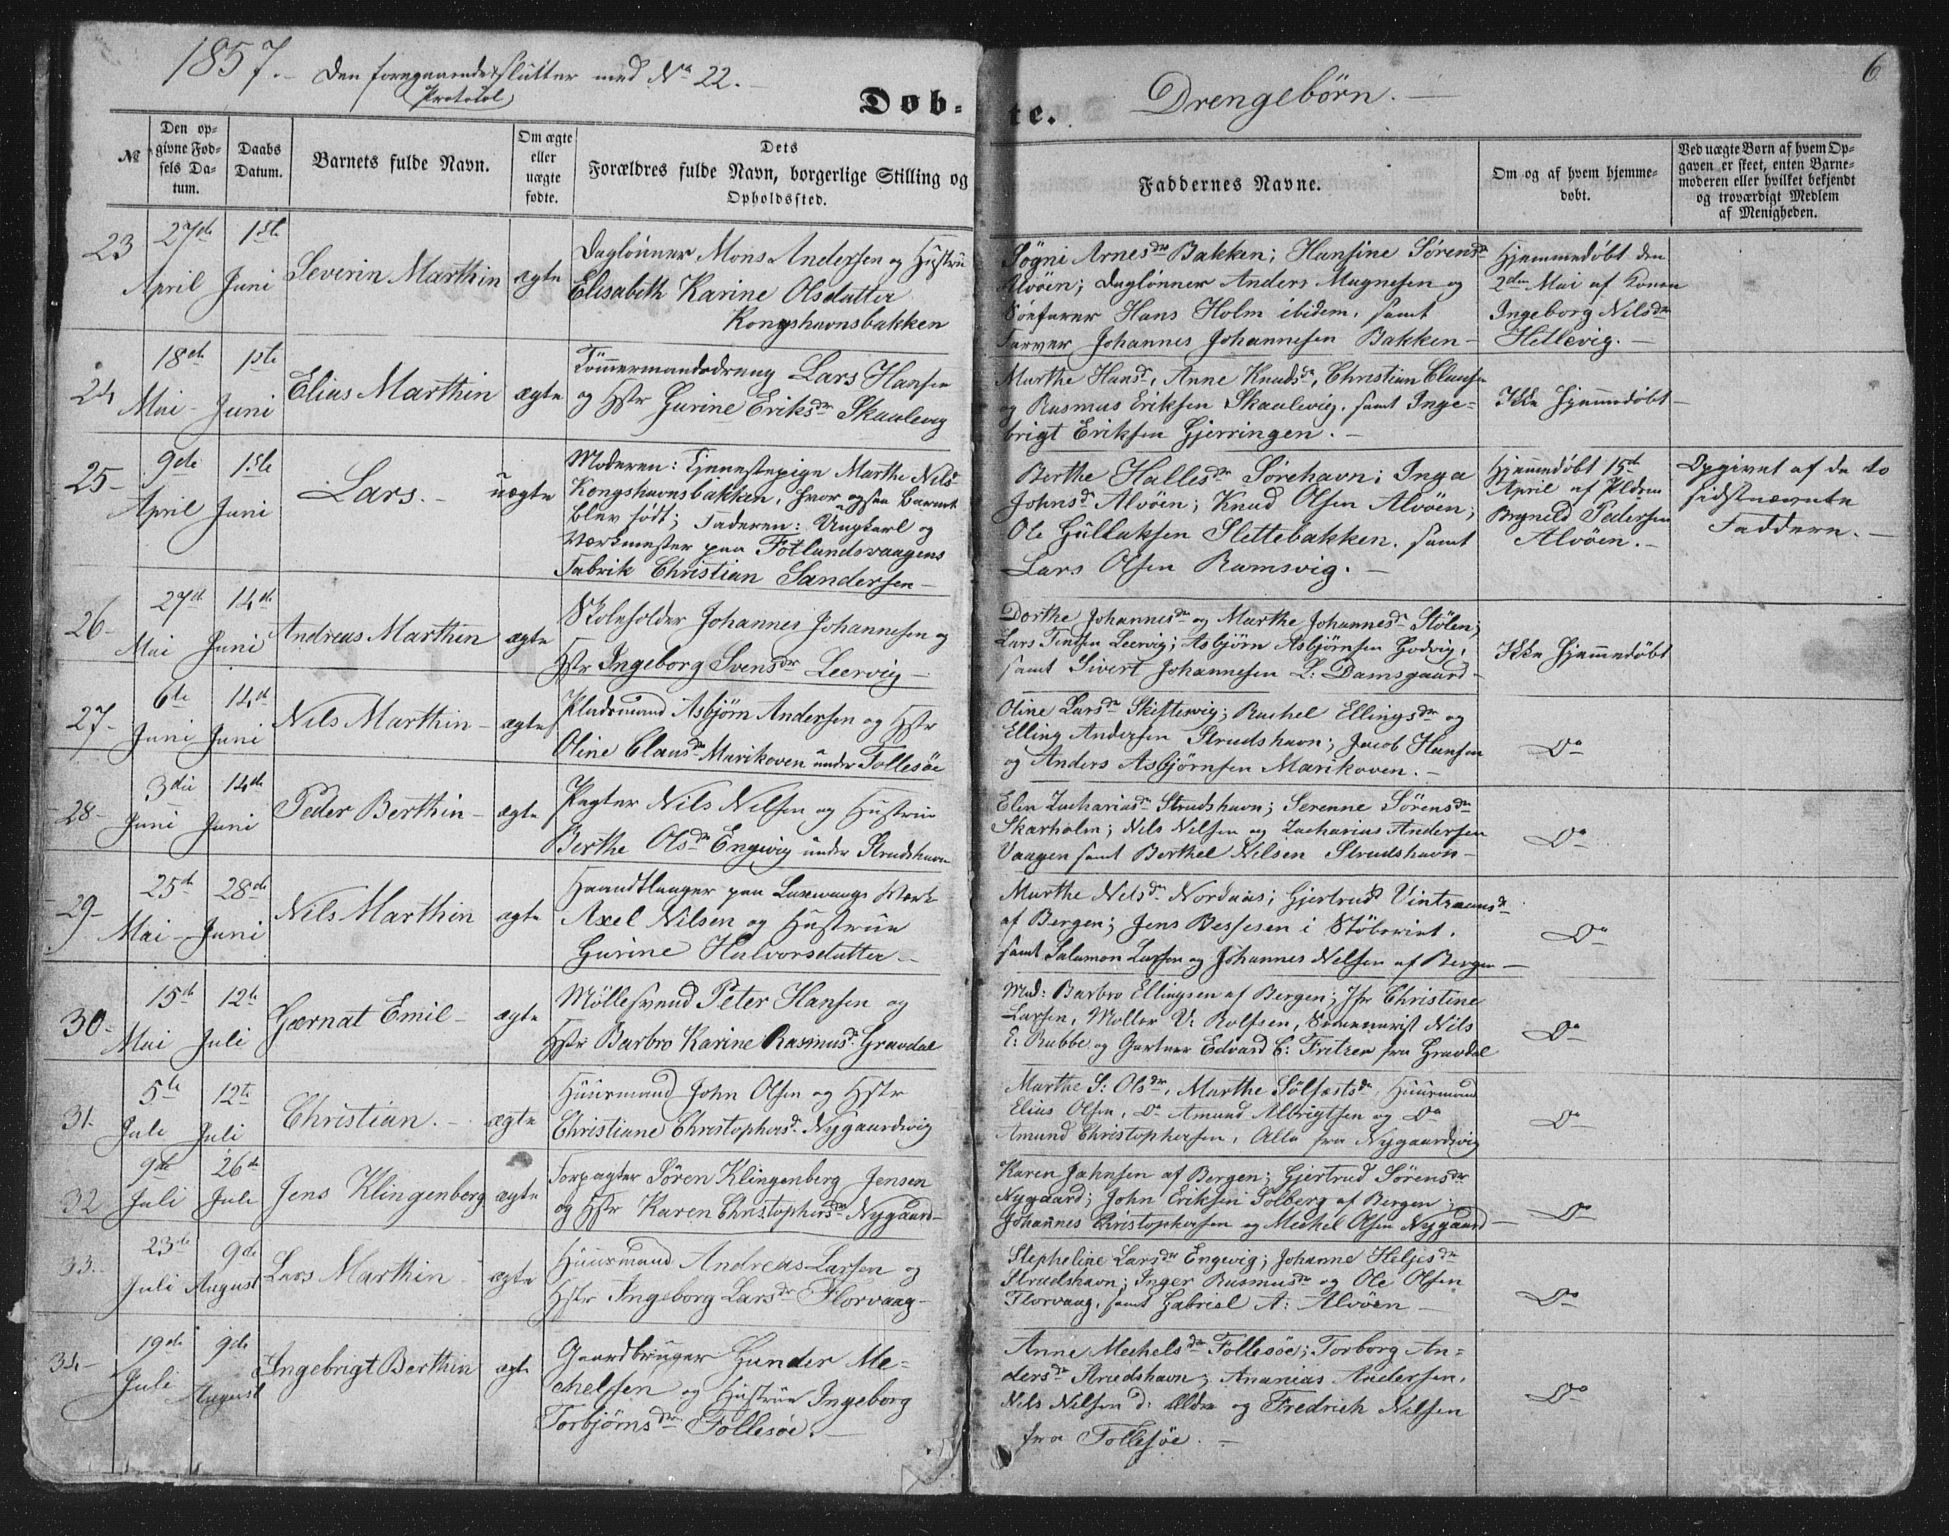 1857. - Den foregaaende slutter med No 22. -
Protokol
Døb-
te.
Drengebørn. -
6
No
Den op-
givne Fød-
sels Da-
tum.
Daabs
Datum.
Barnets fulde Navn.
Om ægte
eller
uægte
fødte.
Dets
Forældres fulde Navn, borgerlige Stilling og
Opholdssted.
Faddernes Navne.
Om og af hvem hjemme-
døbt.
Ved uægte Børn af hvem Op-
gaven er skeet, enten Barne-
moderen eller hvilket bekjendt
og troværdigt Medlem
af Menigheden.
23
27de April
1ste Juni
Severin Marthin
ægte
Daglønner Mons Andersen og Hustru
Elisabeth Karine Olsdatter
Kongshavnsbakken
Søgni Arnesdr Bakken; Hansine Sørensdr
Alvøen; Daglønner Anders Magnesen og
Søefarer Hans Holm ibidem, samt
Farver Johannes Johannesen Bakken -
Hjemmedøbt den
2den Mai af Konen
Ingeborg Nilsdr
Hetlevig. -
24
18de Mai -
1ste Juni
Elias Marthin
ægte
Tømmermandsdreng Lars Hansen
og Hstr Gurine Eriksdr Skaalevig
Marthe Hansdr, Anne Knudsdr, Christian Clausen
og Rasmus Eriksen Skaalevig, samt Inge-
brigt Eriksen Gjerringen. -
Ikke Hjemmedøbt -
25 -
9de April
1ste Juni
Lars. -
uægte
Moderen: Tjenestepige Marthe Nilsdr
Kongshavnsbakken, hvor ogsaa Barnet
blev født; Faderen: Ungkarl og
Værkmester paa Fotlandsvaagens
Fabrik Christian Sandersen -
Berthe Hallesdr Sørehavn; Inga
Johnsdr Alvøen; Knud Olsen Alvøen;
Ole Gullaksen Slettebakken, samt
Lars Olsen Ramsvig. -
Hjemmedøbt 15de
April af Pldrm
Brynild Pedersen
Alvøen. -
Opgivet af de to
sidstnævnte
Faddere. -
26 -
27de Mai
14de Juni
Andreas Marthin
ægte
Skoleholder Johannes Johannesen og
Hstr Ingeborg Svensdr Leervig -
Dorthe Johannesdr og Marthe Johannesdr Stølen;
Lars Leervig; Asbjørn Asbjørnsen Godvig,
samt Sivert Johannesen L: Damsgaard -
Ikke Hjemmedøbt
27 -
6te Juni
14de Juni
Nils Marthin -
ægte
Pladsmand Asbjørn Andersen og Hstr
Oline Clausdr Marikoven under Follesøe
Oline Larsdr Skiftesvig; Rachel Ellingsdr og
Elling Andersen Strudshavn; Jacob Hansen
og Anders Asbjørnsen Marikoven. -
Do
28 -
3die Juni
14de Juni
Peder Berthin -
ægte
Pagter Nils Nilsen og Hustrue
Berthe Olsdr Engevig under Strudshavn
Elen Zachariasdr Strudshavn; Serenne Sørensdr
Skarholm; Nils Nilsen og Zacharias Andersen
Vaagen samt Berthel Nilsen Strudshavn -
Do
29 -
25de Mai -
28de Juni
Nils Marthin
ægte
Haandtlanger paa Laxevaags Værk
Axel Nilsen og Hustrue
Gurine Halvorsdatter -
Marthe Nilsdr Nordaas; Gjertrud
af Bergen; Jens Bessesen i Støberiet,
samt Salamon Larsen og Johannes Nilsen af Bergen -
Do
30 -
15de Mai
12te Juli
Gærnat Emil -
ægte
Møllesvend Peter Hansen og
Hstr Barbro Karine Rasmusdr Gravdal
Mad: Barbro Ellingsen af Bergen; Jfr Christine
Larsen, Møller V: Rolfsen, Seminarist Nils
E: Rabbe og Gartner Edvard C: Fritzen fra Gravdal
Do
31.
5te Juli
12te Juli
Christian. -
ægte
Huusmand John Olsen og Hstr
Christiane Christophersdr Nygaardsvig
Marthe S: Olsdr, Marthe Sølfestsdr, Huusmand
Elias Olsen, Do Amund Albrigtsen og Do
Amund Christophersen, Alle fra Nygaardsvig
Do
32
9de Juli
26de Juli
Jens Klingenberg
ægte
Forpagter Søren Klingenberg Jensen
og Hstr Karen Christophersdr Nygaard -
Karen Jahnsen af Bergen; Gjertrud Sørensdr
Nygaard; John Eriksen Solberg af Bergen;
Johannes Christophersen og Mechel Olsen Nygaard -
Do
33.
23de Juli
9de August
Lars Marthin
ægte
Huusmand Andreas Larsen og
Hstr Ingeborg Larsdr Florvaag -
Stepheline Larsdr Engevig; Johanne Heljesdr
Strudshavn; Inger Rasmusdr og Ole Olsen
Florvaag, samt Gabriel A: Alvøen -
Do
34 -
19de Juli
9de August
Ingebrigt Berthin
ægte
Gaardbruger Gunder Me-
chelsen og Hustrue Ingeborg
Torbjørnsdr Follesøe. -
Anne Mechelsdr Follesøe; Torborg An-
dersdr Strudshavn; Ananias Andersen,
Nils Nilsen d: Ældre og Fredrich Nilsen
fra Follesøe. -
Do